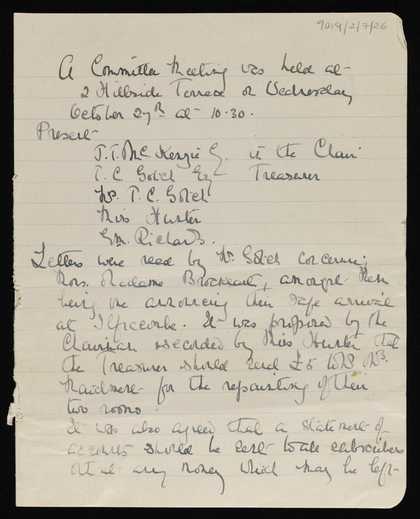 9019/2/7/26
A Committee Meeting was held at
2 Hillside Terrace on Wednesday
October 27th at 10.30.
Present
J.T. McKenzie in the Chair
T.C. Gotch Esq Treasurer
Mrs. T.C. Gotch
Miss Hunter
Richards.
Letters were read by Mr. Gotch concerning
Madame amongst them
being one announcing their safe arrival
at Ilfracombe. It was proposed by the
Chairman seconded by Miss Hunter that
the Treasurer should send £5 to
for the repainting of their
two rooms.
It was also agreed that a statement of
accounts should be sent to all subscribers
any money which may be left